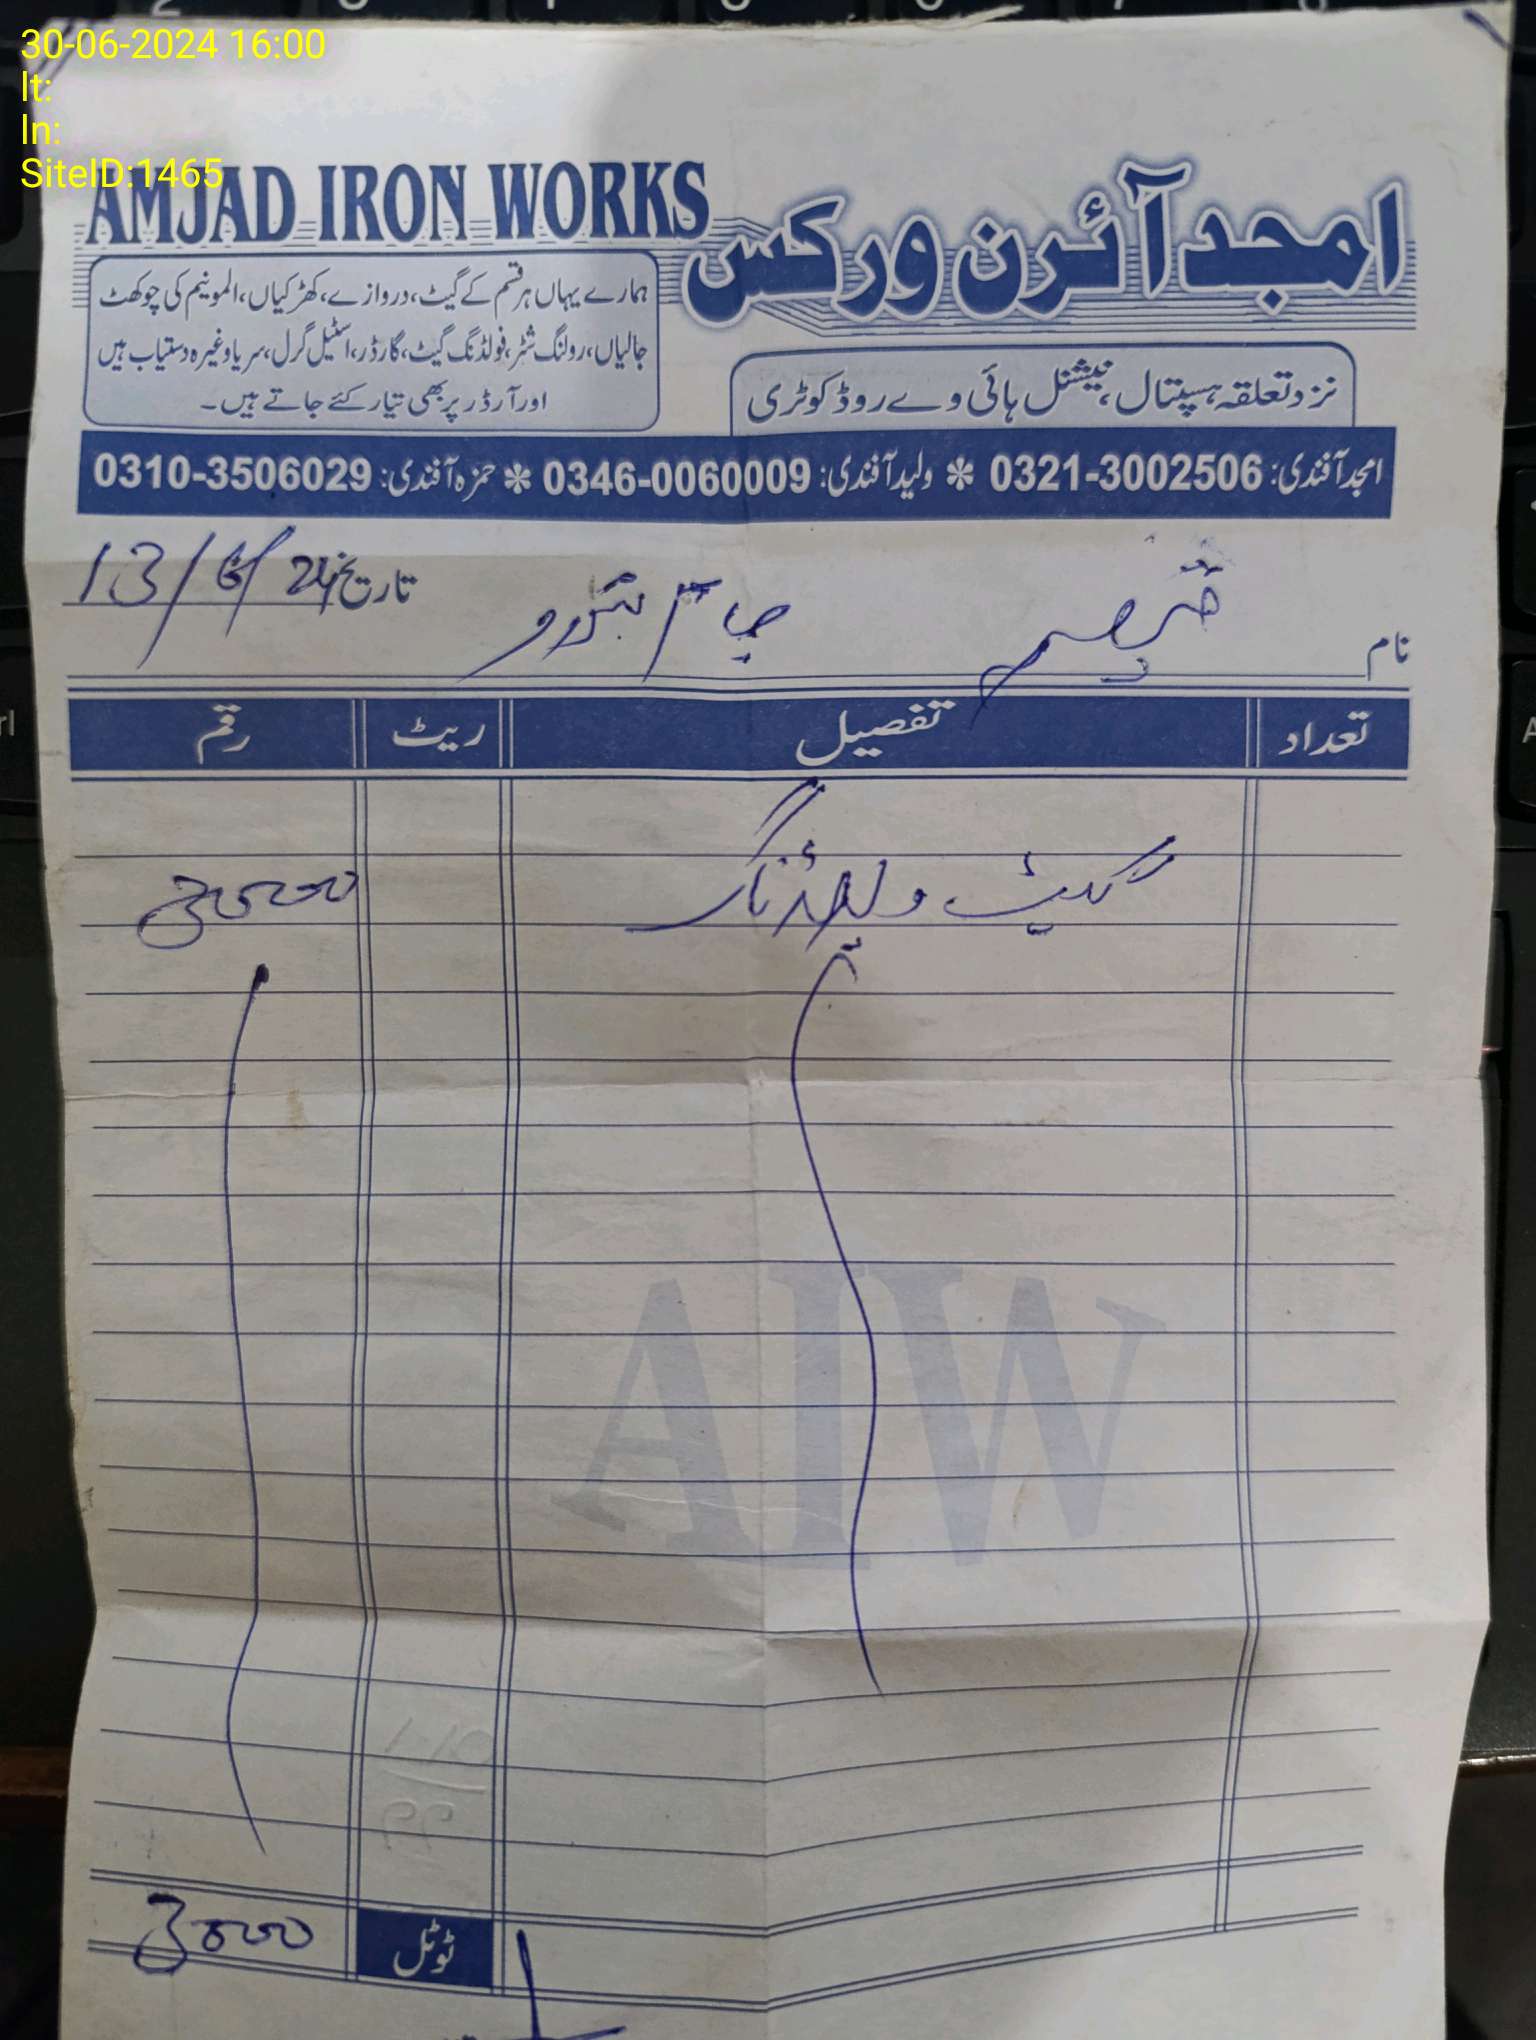 30-06-2024 16:00
lt:
ln:
SiteID:1465
AMJAD IRON WORKS
امجد آئرن ورکس
ہمارے یہاں ہر قسم کے گیٹ، دروازے، کھڑکیاں، المونیم کی چوکھٹ
جالیاں، رولنگ شٹر، فولڈنگ گیٹ، گارڈر، اسٹیل گرل، سریا وغیرہ دستیاب ہیں
اور آرڈر پر بھی تیار کئے جاتے ہیں۔
نزد تعلقہ ہسپتال، نیشنل ہائی وے روڈ کوٹری
امجد آفندی: 0321-3002506 * ولید آفندی: 0346-0060009 * حمزہ آفندی: 0310-3506029
تاریخ 13/6/24
نام جامشورو
تعداد تفصیل ریٹ رقم
گیٹ ویلڈنگ 3000
AIW
ٹوٹل 3000